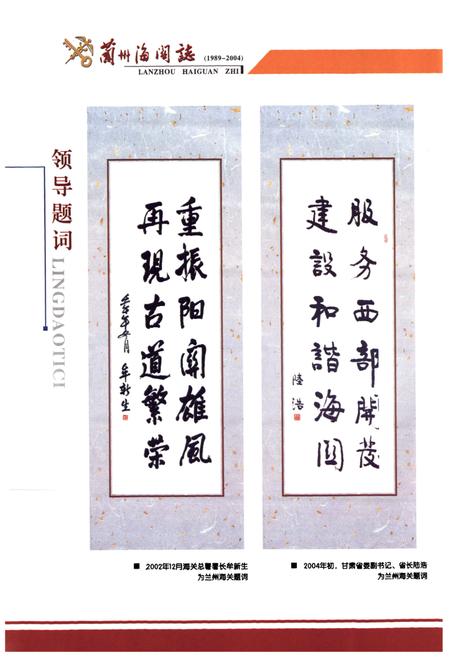 蘭州海関誌 (1989-2004)
LANZHOU HAIGUAN ZHI
领导题词
LINGDAOTICI
重振阳関雄風
再現古道繁荣
牟新生
服务西部開发
建設和諧海関
陸浩
■ 2002年12月海关总署署长牟新生
为兰州海关题词
■ 2004年初，甘肃省委副书记、省长陆浩
为兰州海关题词